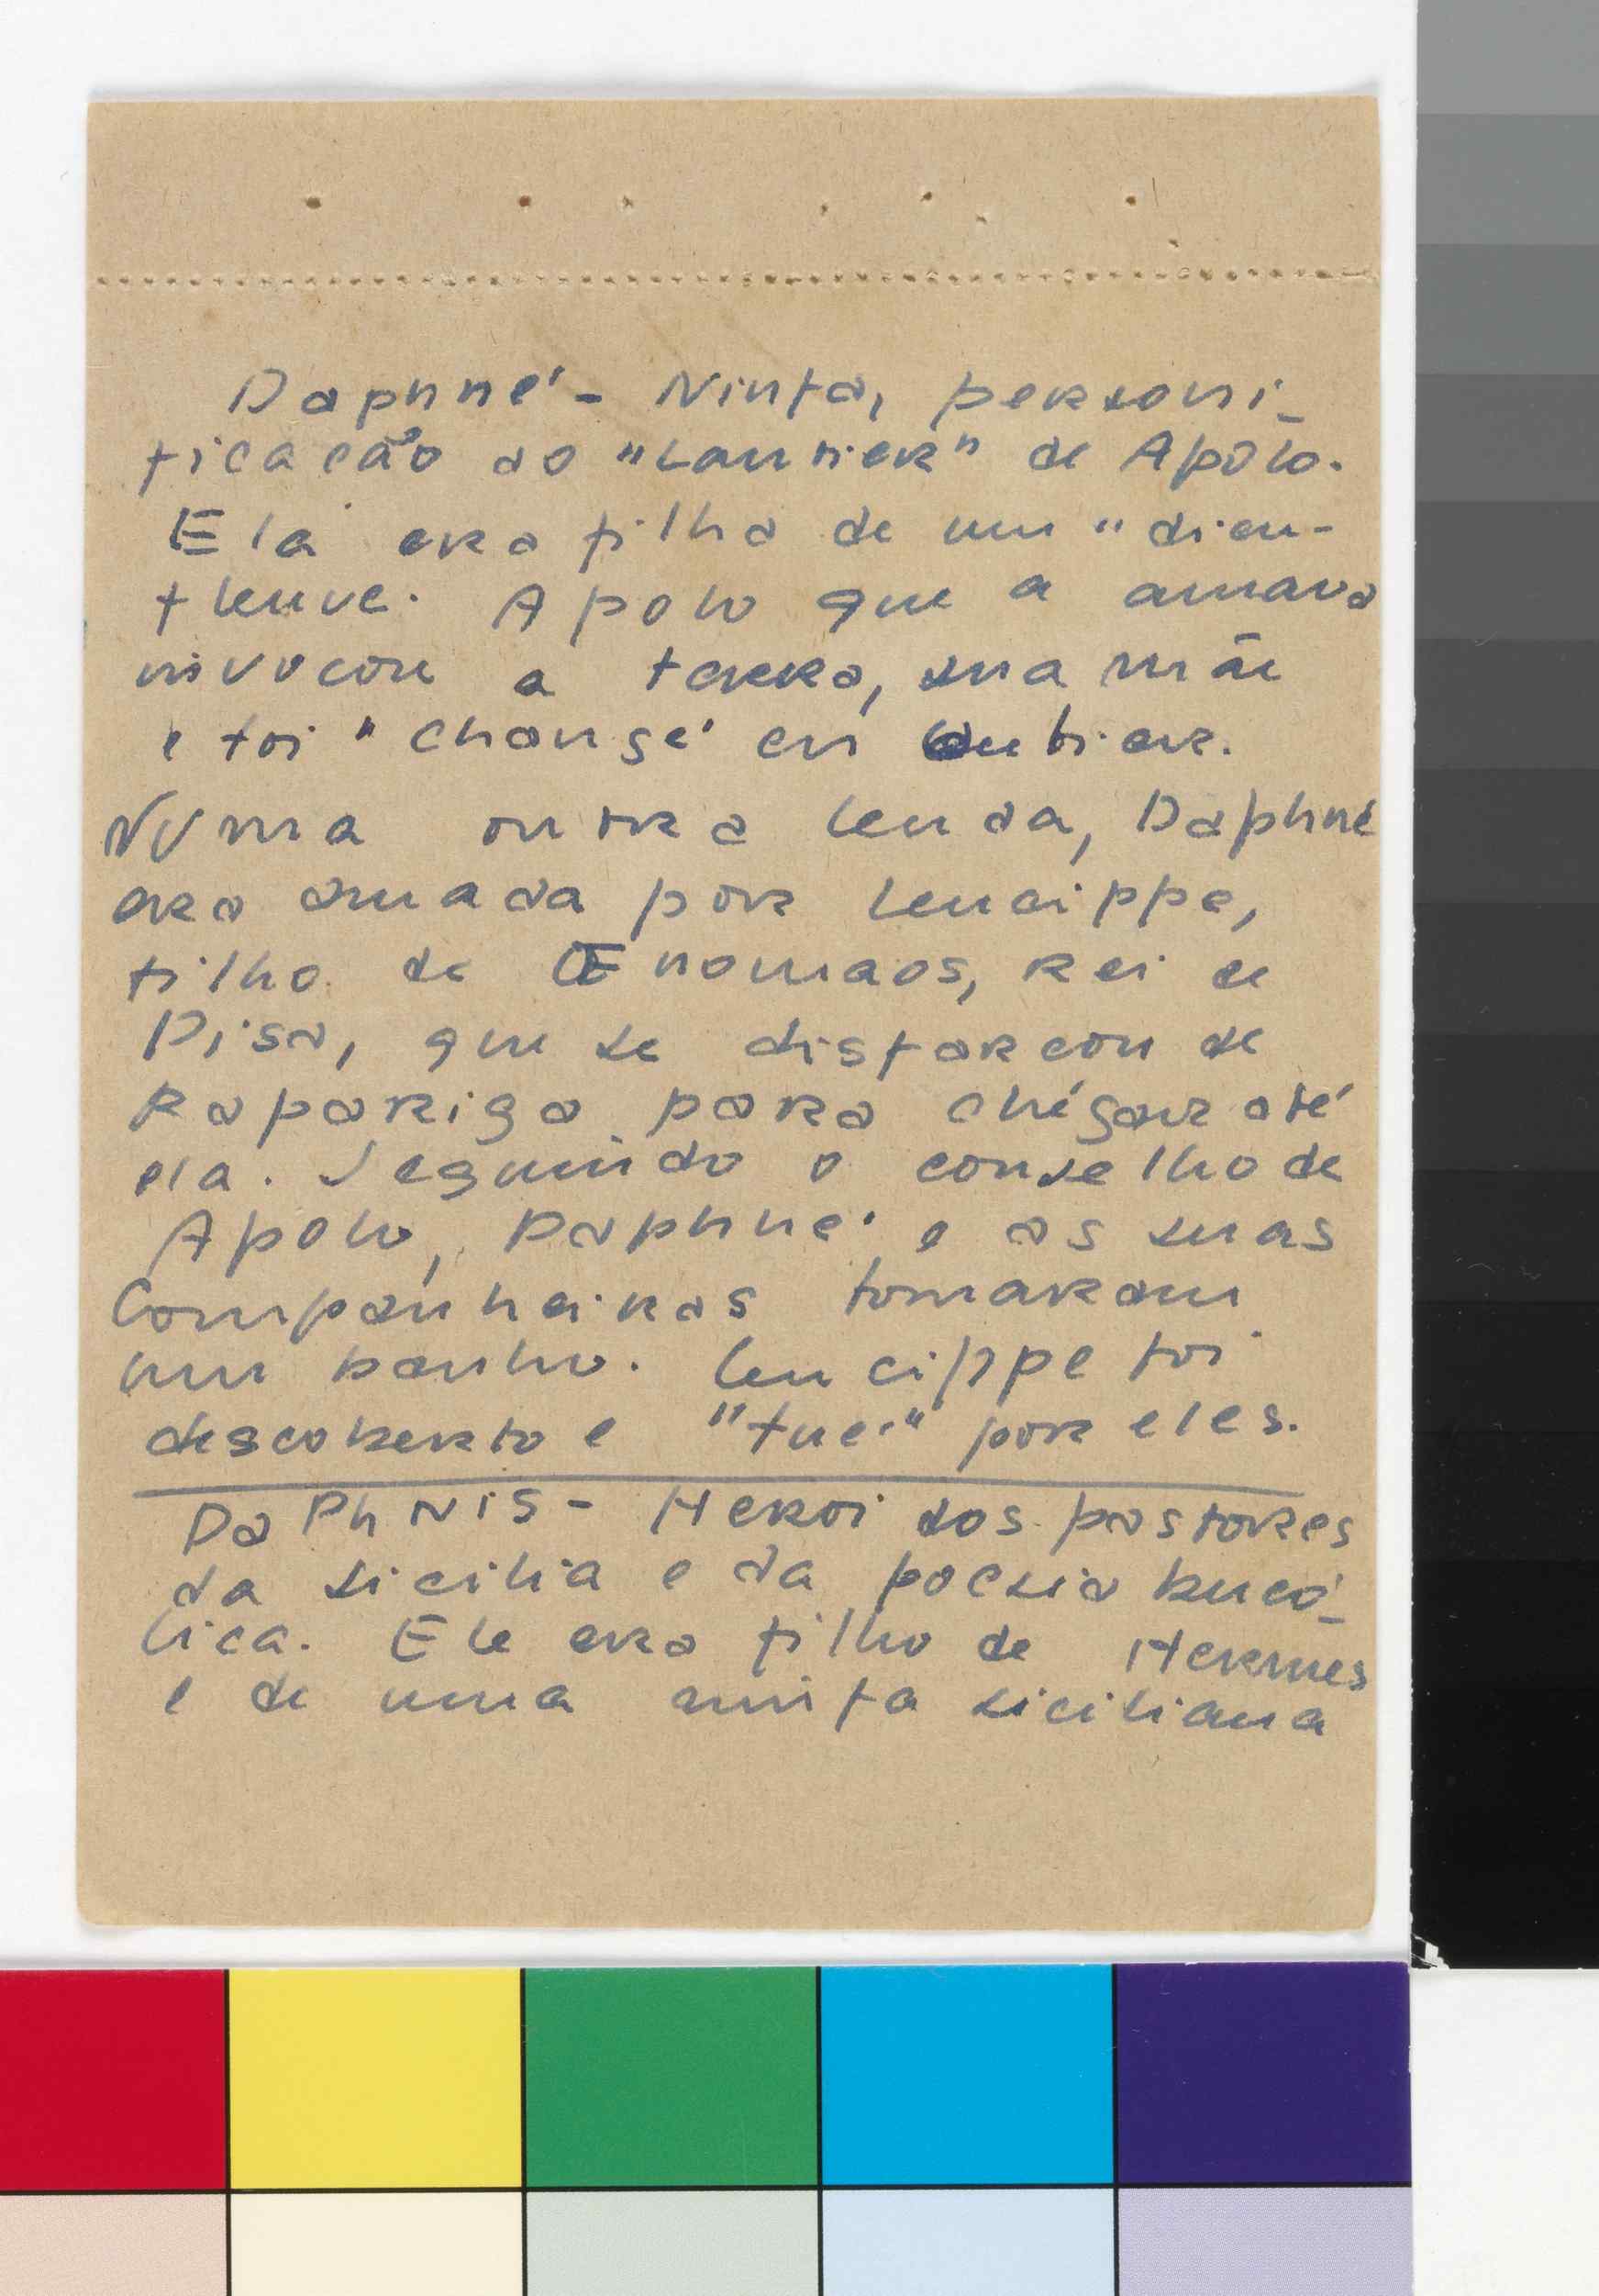 Daphné - Ninfa, personi-
ficação do "Laurier" de Apolo.
Ela era filha de um "dieu-
fleuve. Apolo que a amava
invocou a terra, sua mãe
e foi "changé en laurier.
Numa outra lenda, Daphné
era amada por Leucippe,
filho de Œnomaos, rei de
Pisa, que se disfarcou de
Rapariga para chégar até
ela. Seguindo o conselho de
Apolo, Daphné e as suas
Companheiras tomaram
um banho. Leucippe foi
descoberto e "tué" por eles.
DaPhNiS - Heroi dos pastores
da sicilia e da poesia bucó-
lica. Ele era filho de Hermes
e de uma ninfa siciliana